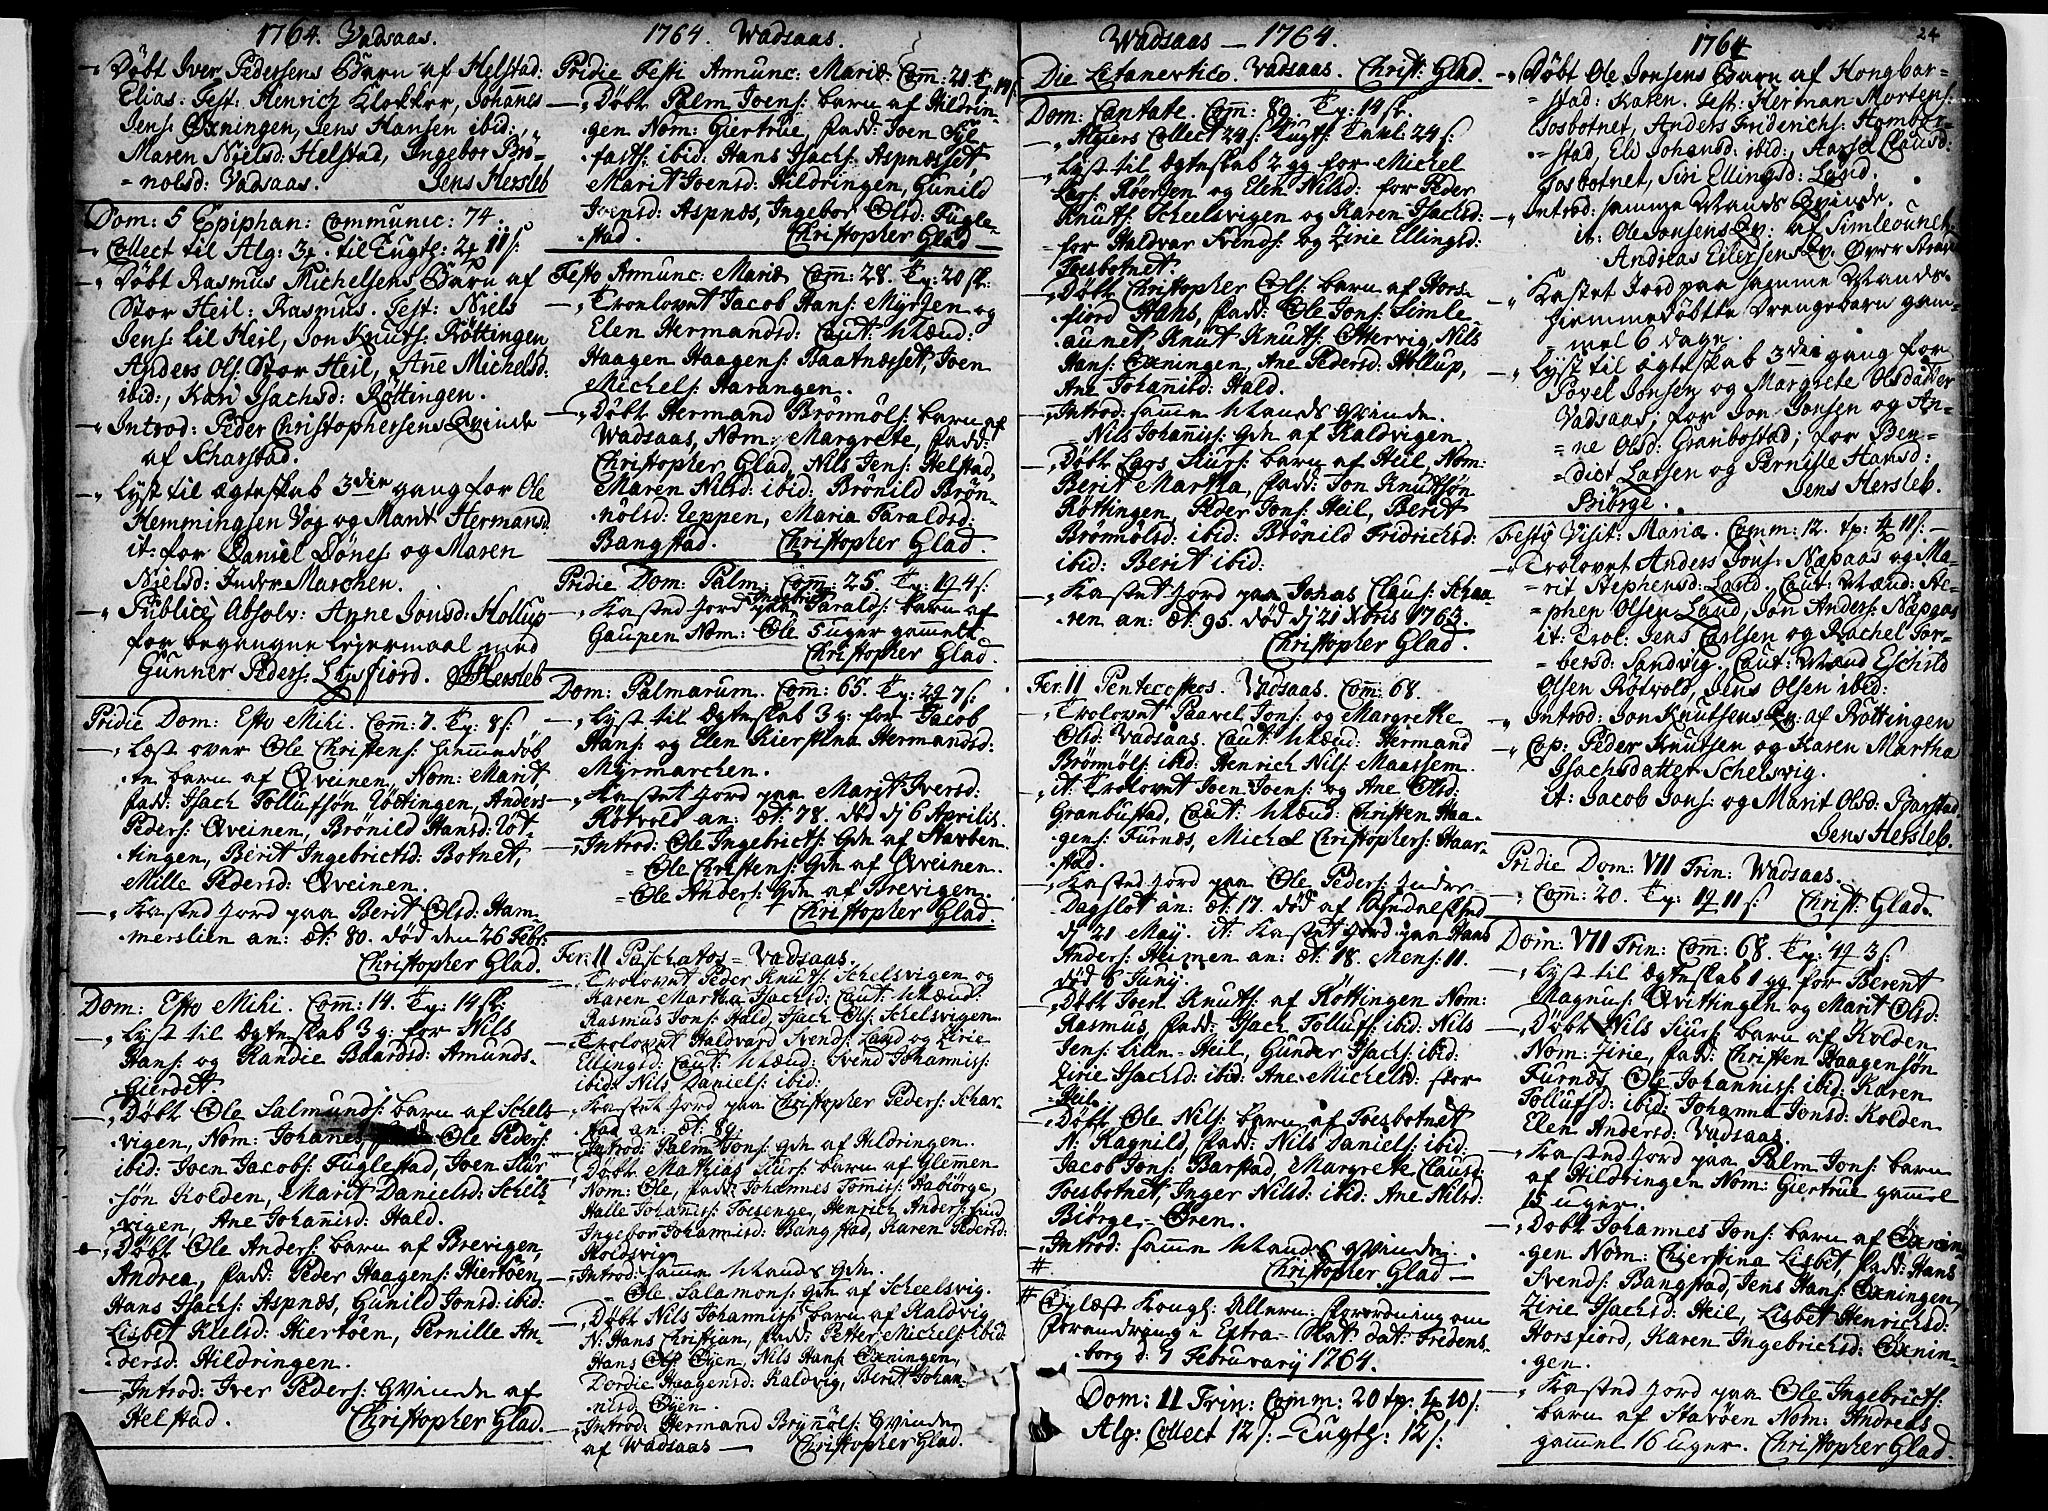 1764. Vadsaas.
Döbt Iver Pedersens Barn af Helstad:
Elias: Test: Henrich Klokker, Johannes
Jens: Øxningen, Jens Hansen ibid:,
Maren Nielsd: Helstad, Ingebor Brö-
nolsd: Vadsaas. Jens Hersleb
Dom: 5 Epiphan: Communic: 74.
Collect til Alg: 3 til Tugth: 11 s:
Döbt Rasmus Michelsens Barn af
Stor Heil: Rasmus. Test: Niels
Jens: Lil Heil, Jon Knuts: Röttingen
Anders Ols: Stor Heil, Anne Michelsd:
ibid:, Kari Isachsd: Röttingen.
Introd: Peder Christophersens Qvinde
af Scharstad.
Lyst til ægteskab 3die gang for Ole
Hemmingsen Vog og Marit Hermansd
it: for Daniel Dönes: og Maren
Nielsd: Inder Marchen.
Publice Absolv: Anne Jonsd: Hollup
for begangne Leiermaal med
Gunner Peders: Lysfiord. JHersleb
Pridie Dom: Esto Mihi. Com: 7. Tp: 8 s:
Læst over Ole Christens: hiemmedöb
te barn af Qveinen, Nom: Marit,
fadd: Isach Tollufsön Röttingen, Anders
Peders: Qveinen, Brönild Hansd: Röt-
tingen, Berit Ingebrictsd: Botnet,
Mille Pedersd: Qveinen.
Kasted Jord paa Berit Olsd: Ham
merslien an: æt: 80. död den 26 Febr:
Christopher Glad.
Dom: Esto Mihi. Com: 14. Tp: 14 sk:
Lyst til ægteskab 3 g: for Nils
Hans: og Randie Baardsd: Amunds-
Gierdet
Döbt Ole Salmunds: barn af Schels
vigen, Nom: Johanes Ole Peders:
ibid: Joen Jacobs: Fuglestad, Joen Siur
sön Kolden, Marit Danielsd: Schels
vigen, Ane Johanisd: Hald.
Döbt Ole Anders: barn af Brevigen,
Andrea, fadd: Peder Haagens: Hiertöen
Hans Isachs: Aspnæs, Gunild Jonsd: ibid:
Lisbet Kielsd: Hiertöen, Pernille An-
dersd: Hildringen.
Introd: Iver Peders: Qvinde af
Helstad. Christopher Glad.
1764. Wadsaas.
Pridie Festi Annunc: Mariæ Com: 21 Tp: 19 s:
Döbt Palm Joens: barn af Hildrin-
gen Nom: Giertrue, fadd: Joen Sil
fasts: ibid: Hans Isachs: Aspnæsset,
Marit Joensd: Hildringen, Gunild
Joensd: Aspnæs, Ingebor Olsd: Fugle-
stad. Christopher Glad
Festo Annunc: Mariæ Com: 28. Tp: 20 sk:
Trolovet Jacob Hans: Myrsen og
Elen Hermandsd: Caut: Mænd:
Haagen Haagens: Baatnæsset, Joen
Michels: Harangen.
Döbt Hermand Brönnöls: barn af
Wadsaas, Nom: Margrete, fadd:
Christopher Glad, Nils Jens: Helstad,
Maren Nilsd: ibid: Brönild Brön-
nolsd: Teppen, Maria Taraldsd:
Bangstad. Christopher Glad.
Pridie Dom: Palm: Com: 25. Tp: 4 s:
Kasted Jord paa Ingebrict Taralds: barn af
Gaupen Nom: Ole 5 uger gammelt.
Christopher Glad.
Dom: Palmarum. Com: 65. Tp: 7 s:
Lyst til ægteskab 3 g: for Jacob
Hans: og Elen Kierstina Hermandsd:
Myrmarchen.
Kastet Jord paa Marit Iversd:
Rötvold an: æt: 78. död dj 6 Aprilis.
Introd: Ole Ingebricts: Qvn af Stavöen
Ole Christens: Qvn af Qveinen.
Ole Anders: Qvn af Brevigen.
Christopher Glad.
Fer: 11 Paschatos = Vadsaas.
Trolovet Peder Knuts: Schelsvigen og
Karen Martha Isachsd: Caut: Mænd:
Rasmus Jons: Hald, Isach Ols: Schelsvigen.
Trolovet Haldvard Svends: Land og Zirie
Ellingsd: Caut: Mænd: Svend Johanniss:
ibid: Nils Daniels: ibid:
Kastet Jord paa Christopher Peders: Schar-
stad an: æt: 89.
Introd: Palm Jons: qvn af Hildringen.
Döbt Mathias Siurs: barn af Glemmen
Nom: Ole, fadd: Johannes Tomiss: Habiörge,
Halle Johaniss: Torsenge, Henrich Anders: Lund
Ingebor Johannisd: Bangstad, Karen Pedersd:
Holdsvig.
Introd: samme Mands qvn.
Ole Salamons: qvn af Scheelsvig.
Döbt Nils Johanniss: barn af Kaldvig
N: Hans Christian, fadd: Petter Michels: ibid:
Hans Ols: Øyen, Nils Hans: Øxningen,
Dordie Haagensd: Kaldvig, Berit Johan-
nisd: Øyen.
Introd: Hermand Brynnöls: Qvinde
af Wadsaas — Christopher Glad.
Wadsaas — 1764.
Die Letanevtico. Vadsaas. Christ: Glad.
Dom: Cantate. Com: 89. Tp: 14 sk.
Algiers Collect 24 s: Tugth: Tavl: 24 s:
Lyst til ægteskab 2 gg for Michel
Lars: Röersen og Elen Nilsd: for Peder
Knuts: Scheelsvigen og Karen Isachsd:
for Haldvar Svends: og Zirie Ellingsd:
Toesbotnet.
Döbt Christopher Ols: barn af Hors-
fiord Hans, fadd: Ole Jons: Simle-
aunet, Knut Knuts: Ottervig, Nils
Hans: Øxningen, Ane Pedersd: Hollup,
Ane Johanisd: Hald.
Introd: samme Mands Qvinde.
Nils Johaniss: Qvn af Kaldvigen.
Döbt Lars Siurs: barn af Heil, Nom:
Berit Martha, fadd: Jon Knudsön
Röttingen, Peder Jons: Heil, Berit
Brönnölsd: ibid: Brönild Fridrichsd:
ibid: Berit ibid:
Kastet Jord paa Johas Claus: Schaa-
ren an: æt: 95. död dj 21 Xbris 1763.
Christopher Glad.
Fer: 11 Pentecostes. Vadsaas. Com: 68.
Trolovet Paavel Jons: og Margrete
Olsd: Vadsaas. Caut: Mænd: Hermand
Brönnöls: ibid: Henrich Nils: Maassem.
it: Trolovet Joen Joens: og Ane Olsd:
Granbustad, Caut: Mænd: Christen Haa-
gens: Furnæs, Michel Christophers: Haar-
stad.
Kasted Jord paa Ole Peders: Inder-
Dagslot an: æt: 17. död af
dj 21 May. it: Kastet Jord paa Hans
Anders: Heimen an: æt: 18. Mens: 11.
död 6 Junij.
Döbt Joen Knuts: af Röttingen Nom:
Rasmus, fadd: Isach Tollufs: ibid: Nils
Jens: Lille-Heil, Gunder Isachs: ibid:
Zirie Isachsd: ibid: Ane Michelsd: stor
Heil.
Döbt Ole Nils: barn af Toesbotnet
N. Ragnild, fadd: Nils Daniels: ibid:
Jacob Jons: Barstad, Margrete Clausd:
Toesbotnet, Inger Nilsd: ibid: Ane Nilsd:
Biörge-Ören.
Introd: samme Mands Qvinde.
# Christopher Glad —
# Oplæst Kongl: Allern: forordning om
forandring i Extra-Skat dat: Fredens-
borg d: 7 Februarij 1764.
Dom: 11 Trin: Comm: 20 tp: 10 s:
Alg: Collect 12 s: Tugth: 12 s:
1764
24
Döbt Ole Jonsens Barn af Hongbar-
stad: Karen. Test: Herman Mortens:
Tosbotnet, Anders Friderichs: Hombor-
stad, Eli Johansd: ibid:, Aasel Clausd:
Tosbotnet, Siri Ellingsd: Land.
Introd: samme Mands Qvinde.
it: Ole Jonsens Qv: af Simleounet
Andreas Eilersens Qv: Över
Kastet Jord paa samme Mands
hiemmedöbtte Drengebarn gam-
mel 6 dage.
Lyst til ægteskab 3die gang for
Povel Jonsen og Margrete Olsdatter
Vadsaas; for Jon Jonsen og An-
ne Olsd: Granbostad; for Ben-
dict Larsen og Pernille Hansd:
Biörge. Jens Hersleb.
Festo Visit: Mariæ. Comm: 12. tp: 11 s:
Trolovet Anders Jons: Næpaas og Ma-
rit Stephensd: Land. Caut: Mænd: Ste-
phen Olsen Land, Jon Anders: Næpaas
it: Trol: Jens Carlsen og Rachel Tor-
bersd: Sandvig. Caut: Mænd Eschild
Olsen Rötvold, Jens Olsen ibid:
Introd: Jon Knutsens Qv: af Röttingen
Cop: Peder Knutsen og Karen Martha
Isachsdatter Schelsvig.
it: Jacob Jons: og Marit Olsd: Barstad
Jens Hersleb.
Pridie Dom: VII Trin: Wadsaas.
Com: 20. Tp: 11 s: Christ: Glad.
Dom: VII Trin: Com: 68. Tp: 3 s:
Lyst til ægteskab 1 gg for Berent
Magnus: Qvittingen og Marit Olsd:
Döbt Nils Siurs: barn af Kolden
Nom: Zirie, fadd: Christen Haagensön
Furnæs, Ole Johanniss: ibid: Karen
Tollufsd: ibid: Johanna Jonsd: Kolden
Elen Andersd: Vadsaas.
Kasted Jord paa Palm Jons: barn
af Hildringen Nom: Giertrue gammel
15 uger.
Döbt Johannes Jons: barn af Öxnin-
gen Nom: Chierstina Lisbet, fadd: Hans
Svends: Bangstad, Jens Hans: Øxningen,
Zirie Isachsd: Heil, Lisbet Henrichsd:
Horsfiord, Karen Ingebrichsd: Öxnin-
gen.
Kasted Jord paa Ole Ingebricts:
barn af Stavöen Nom: Andreas
gammel 16 uger. Christopher Glad.